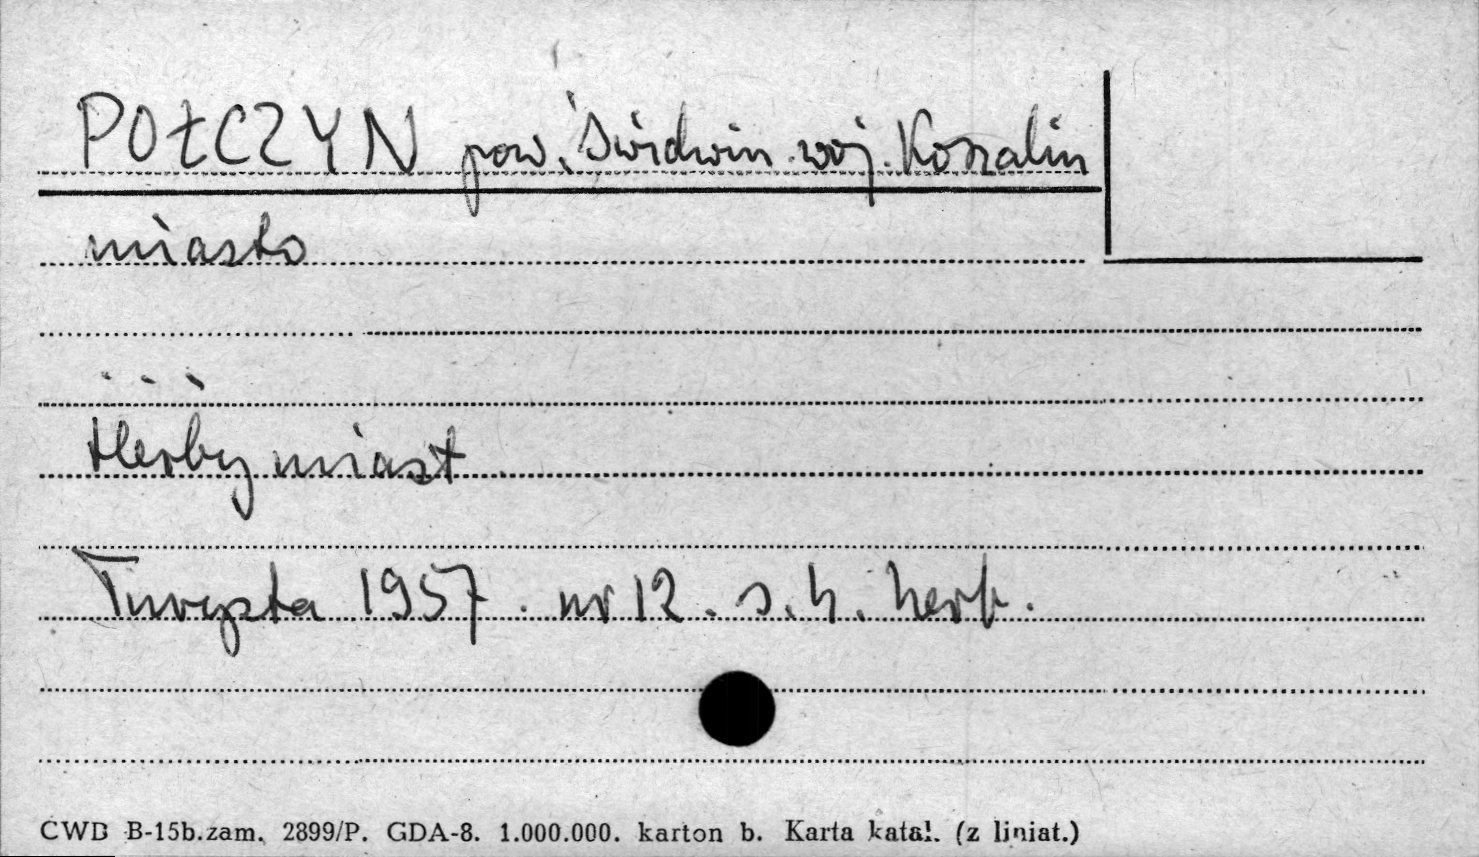 POŁCZYN pow. Świdwin. woj. Koszalin
miasto
. . .
Herby miast
Turysta 1957. nr 12. s. 4. herb.
CWD B-15b.zam. 2899/P. GDA-8. 1.000.000. karton b. Karta katal. (z liniat.)